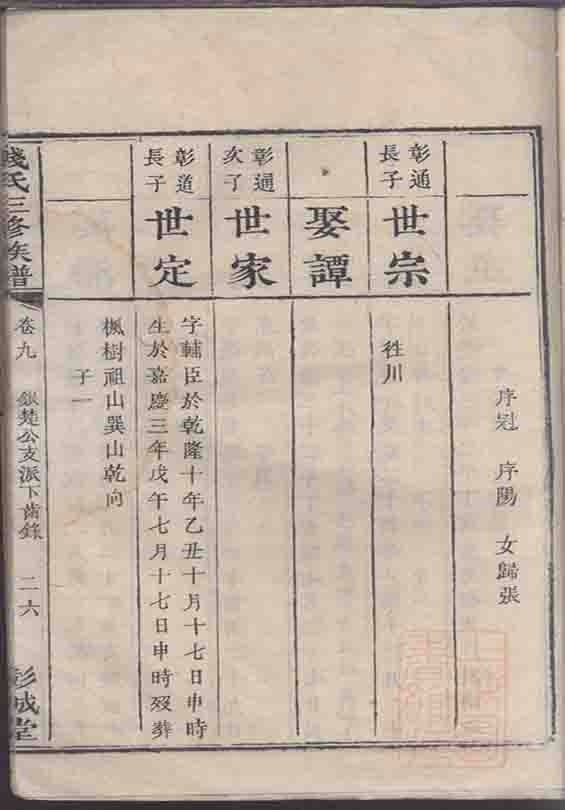 序冠 序陽 女歸張
彰通
長子
世宗
徃川
娶譚
彰通
次子
世家
彰道
長子
世定
字輔臣於乾隆十年乙丑十月十七日申時
生於嘉慶三年戊午七月十七日申時歿葬
楓樹祖山巽山乾向
子一
錢氏三修族譜
卷九
銀楚公支派下齒錄
二六
彭城堂